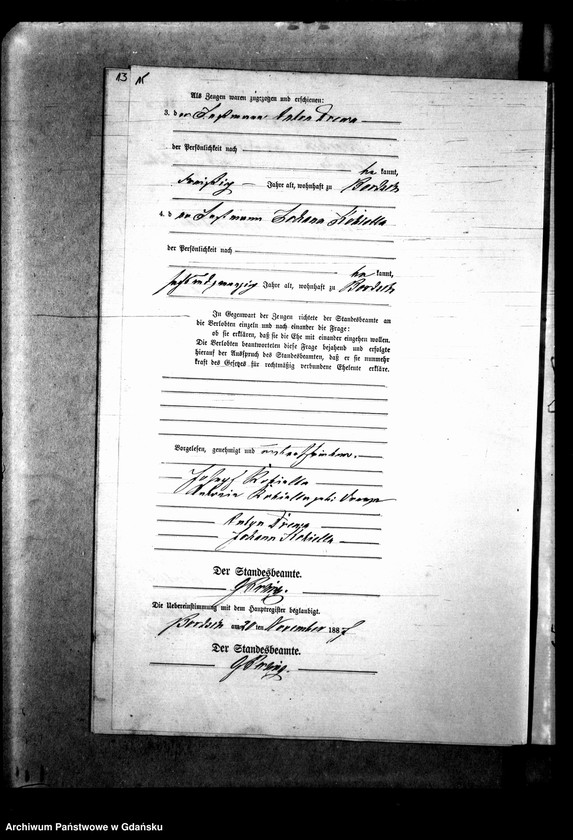 13
Als Zeugen waren zugezogen und erschienen:
3. der Instmann Anton Drewa
der Persönlichkeit nach
be kannt,
dreißig Jahre alt, wohnhaft zu Bordzich
4. der Instmann Johann Kobiella
der Persönlichkeit nach
be kannt,
sechsundzwanzig Jahre alt, wohnhaft zu
In Gegenwart der Zeugen richtete der Standesbeamte an
die Verlobten einzeln und nach einander die Frage:
ob sie erklären, daß sie die Ehe mit einander eingehen wollen.
Die Verlobten beantworteten diese Frage bejahend und erfolgte
hierauf der Ausspruch des Standesbeamten, daß er sie nunmehr
kraft des Gesetzes für rechtmäßig verbundene Eheleute erkläre.
Vorgelesen, genehmigt und unterschrieben.
Joseph Kobiella
Kobiella geb. Drewa
Anton Drewa
Johann Kobiella
Der Standesbeamte.
Die Uebereinstimmung mit dem Hauptregister beglaubigt.
am 20 ten November 188
Der Standesbeamte.
Archiwum Państwowe w Gdańsku